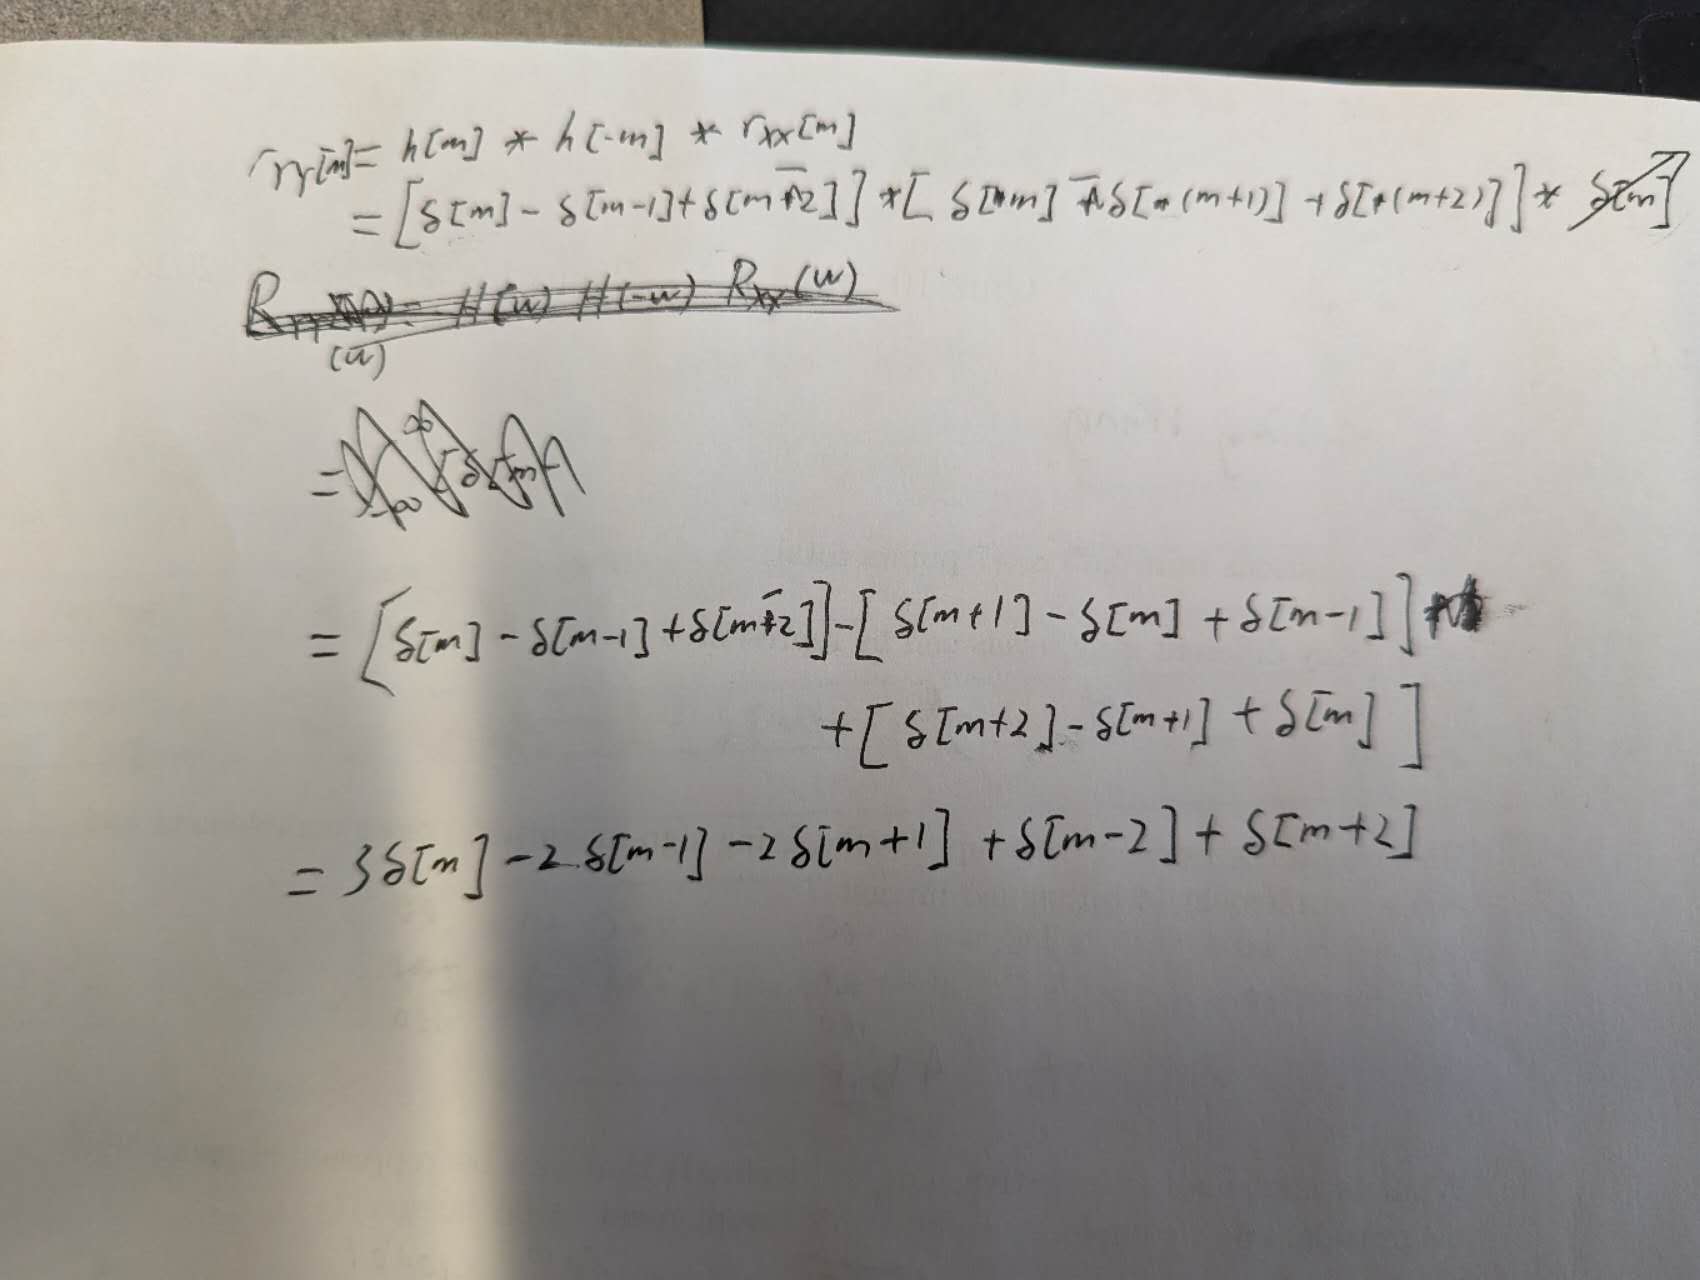 r_yy[m] = h[m] * h[-m] * r_xx[m]
= [δ[m] - δ[m-1] + δ[m-2]] * [δ[m] - δ[(m+1)] + δ[(m+2)]] * δ[m]
R_yy(w) = H(w) H(-w) R_xx(w)
=
= [δ[m] - δ[m-1] + δ[m-2]] - [δ[m+1] - δ[m] + δ[m-1]]
+ [δ[m+2] - δ[m+1] + δ[m]]
= 3δ[m] - 2δ[m-1] - 2δ[m+1] + δ[m-2] + δ[m+2]